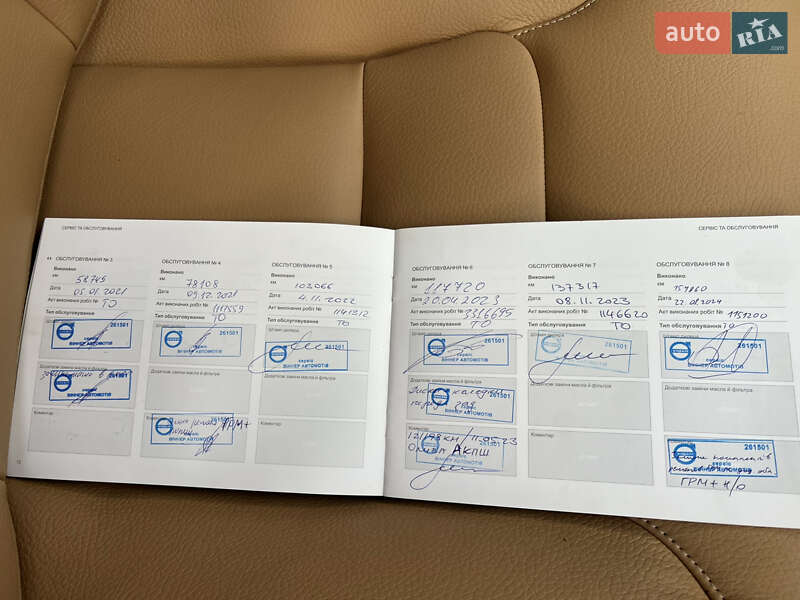 auto RIA .com
СЕРВІС ТА ОБСЛУГОВУВАННЯ
ОБСЛУГОВУВАННЯ № 3
Виконано
км 58745
Дата 05.01.2021
Акт виконаних робіт №
Тип обслуговування ТО
Штамп дилера
261501
сервіс
ВІННЕР АВТОМОТІВ
Додаткові заміни масла й фільтра
261501
сервіс
ВІННЕР АВТОМОТІВ
Коментар
ОБСЛУГОВУВАННЯ № 4
Виконано
км 78108
Дата 09.12.2021
Акт виконаних робіт № 1117559
Тип обслуговування ТО
Штамп дилера
261501
сервіс
ВІННЕР АВТОМОТІВ
Додаткові заміни масла й фільтра
Коментар
261501
ГРМ+
ВІННЕР АВТОМОТІВ
ОБСЛУГОВУВАННЯ № 5
Виконано
км 102066
Дата 4.11.2022
Акт виконаних робіт № 1141312
Тип обслуговування ТО
Штамп дилера
261501
сервіс
ВІННЕР АВТОМОТІВ
Додаткові заміни масла й фільтра
Коментар
СЕРВІС ТА ОБСЛУГОВУВАННЯ
ОБСЛУГОВУВАННЯ № 6
Виконано
км 117720
Дата 20.04.2023
Акт виконаних робіт №
Тип обслуговування ТО
Штамп дилера
261501
сервіс
ВІННЕР АВТОМОТІВ
Додаткові заміни масла й фільтра
261501
Коментар
Олива АКПШ
ВІННЕР АВТОМОТІВ
ОБСЛУГОВУВАННЯ № 7
Виконано
км 137317
Дата 08.11.2023
Акт виконаних робіт № 1146620
Тип обслуговування ТО
Штамп дилера
261501
Додаткові заміни масла й фільтра
Коментар
ОБСЛУГОВУВАННЯ № 8
Виконано
км
Дата
Акт виконаних робіт № 1151200
Тип обслуговування ТО
Штамп дилера
261501
сервіс
ВІННЕР АВТОМОТІВ
Додаткові заміни масла й фільтра
Коментар
261501
сервіс
ГРМ+